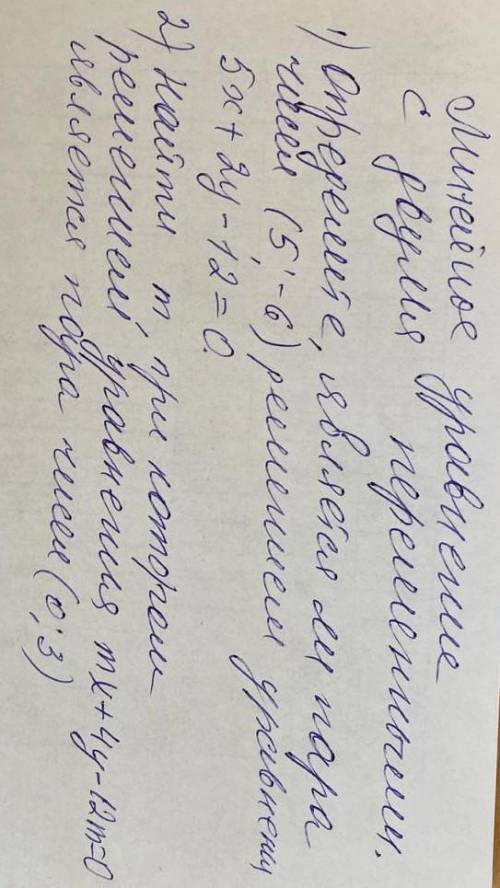 Линейное уравнение
с двумя переменными.
1) Определите, является ли пара
чисел (5; -6) решением уравнения
5x + 2y - 12 = 0.
2) Найти m, при котором
решением уравнения mx + 4y - 12m = 0
является пара чисел (0; 3)